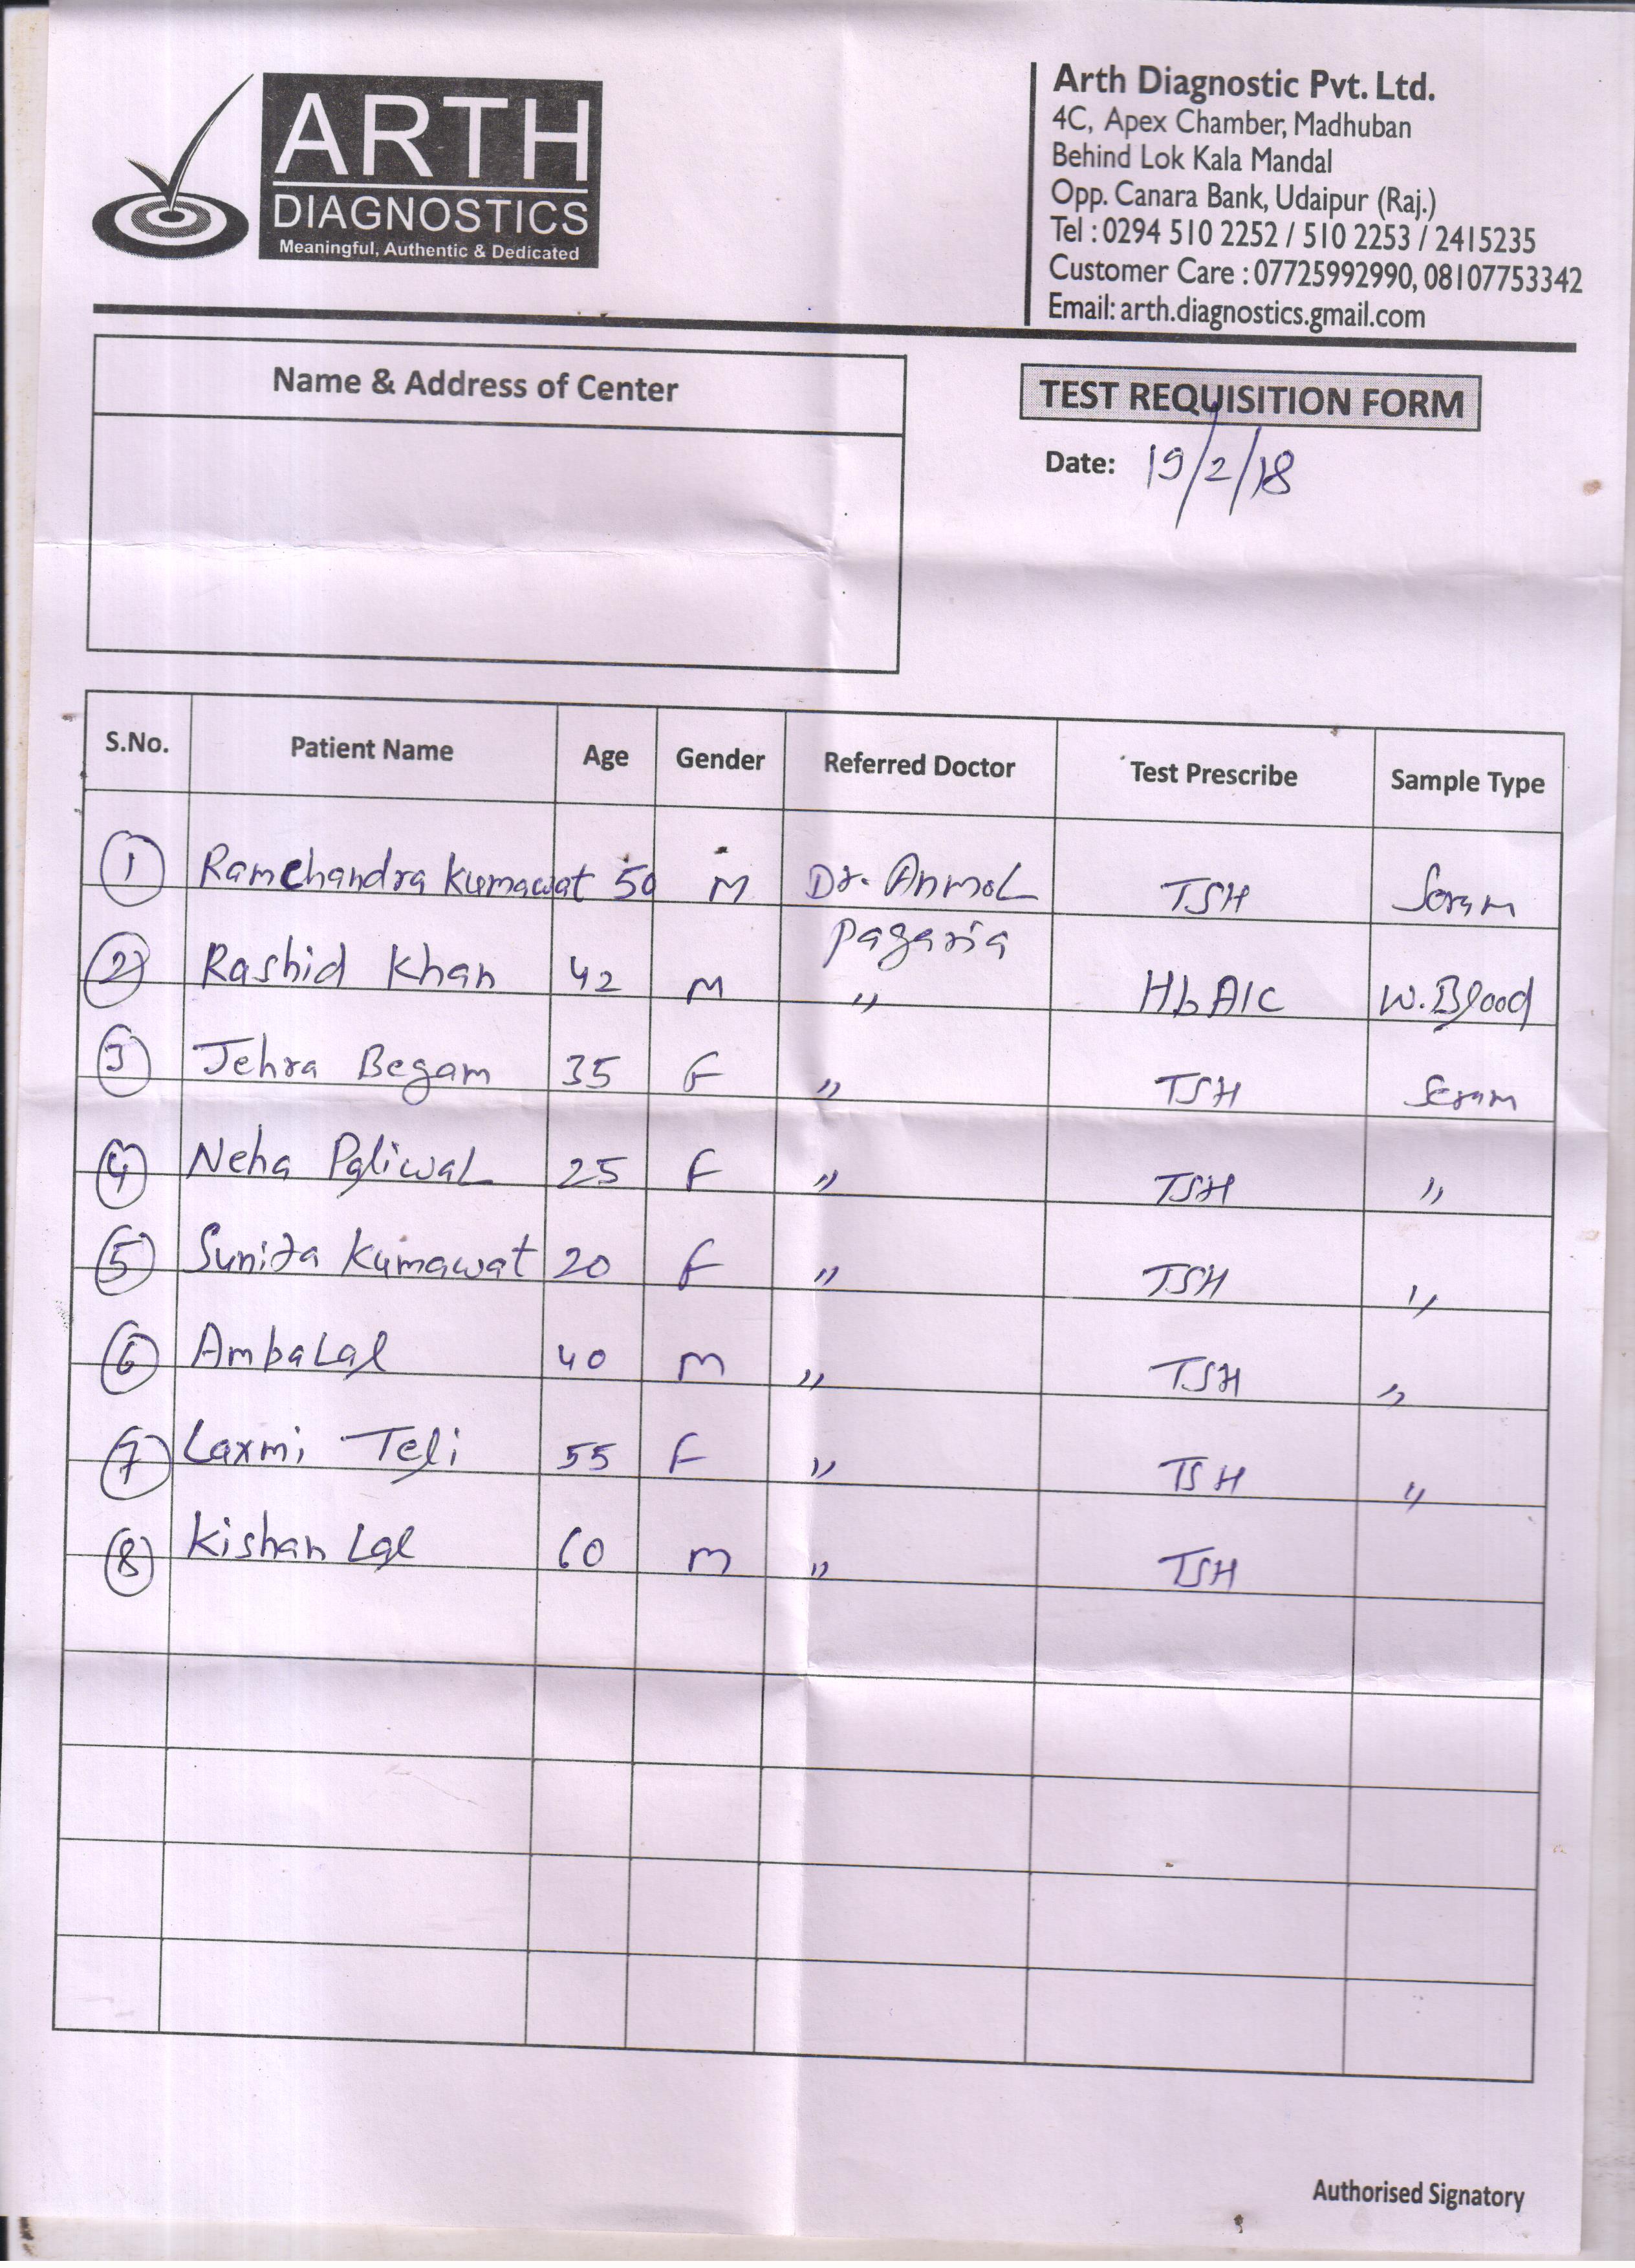 ARTH
DIAGNOSTICS
Meaningful, Authentic & Dedicated
Arth Diagnostic Pvt. Ltd.
4C, Apex Chamber, Madhuban
Behind Lok Kala Mandal
Opp. Canara Bank, Udaipur (Raj.)
Tel : 0294 510 2252 / 510 2253 / 2415235
Customer Care : 07725992990, 08107753342
Email: arth.diagnostics.gmail.com
Name & Address of Center
TEST REQUISITION FORM
Date: 19/2/18
S.No. Patient Name Age Gender Referred Doctor Test Prescribe Sample Type
1 Ramchandra Kumawat 50 M Dr. Anmol Pagaria TSH Seram
2 Rashid Khan 42 M " HbA1C W. Blood
3 Jehra Begam 35 F " TSH Seram
4 Neha Paliwal 25 F " TSH "
5 Sunita Kumawat 20 F " TSH "
6 Ambalal 40 M " TSH "
7 Laxmi Teli 55 F " TSH "
8 Kishan Lal 60 M " TSH
Authorised Signatory